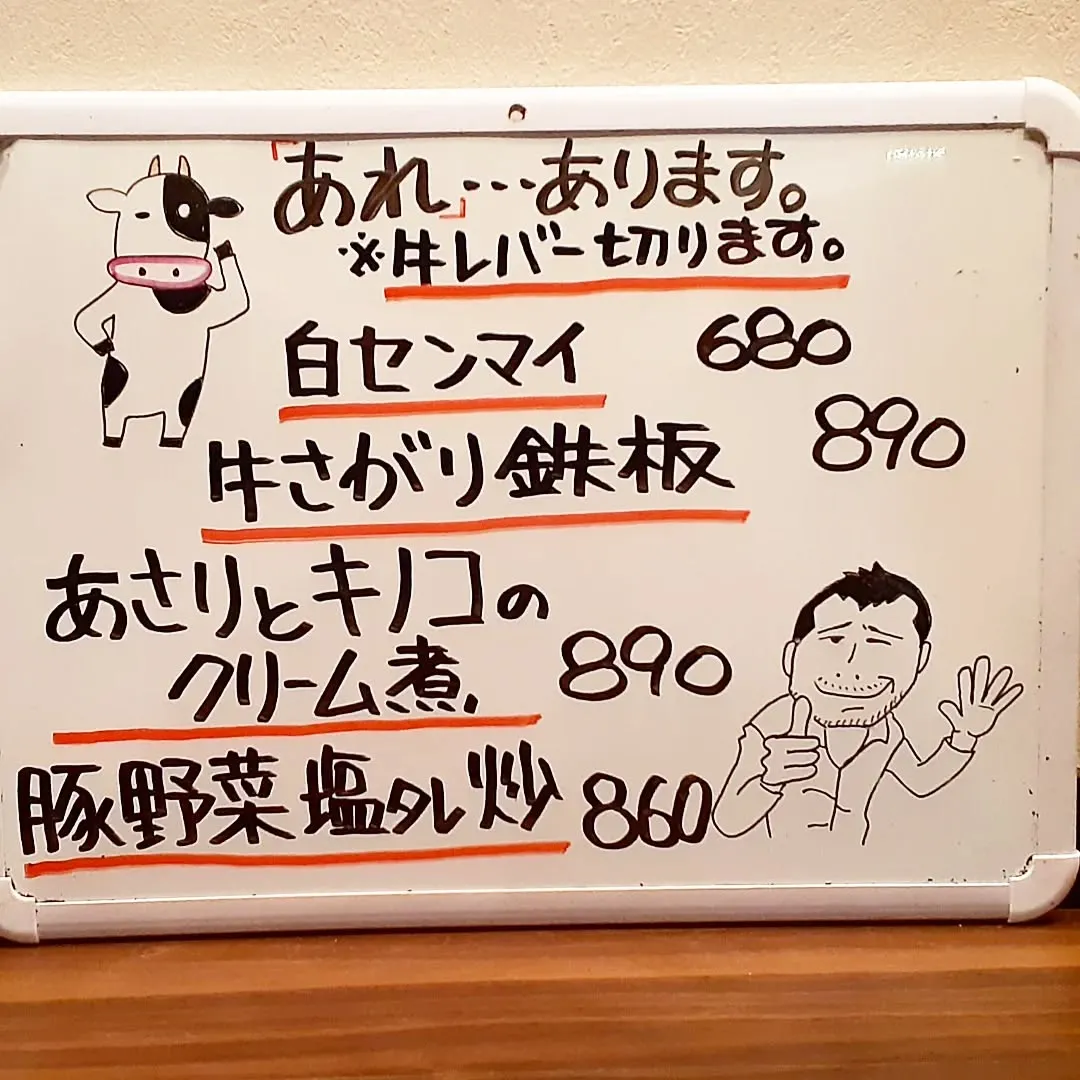 「あれ」…あります。
※牛レバー切ります。
白センマイ 680
牛さがり鉄板 890
あさりとキノコの
クリーム煮 890
豚野菜塩タレ炒 860